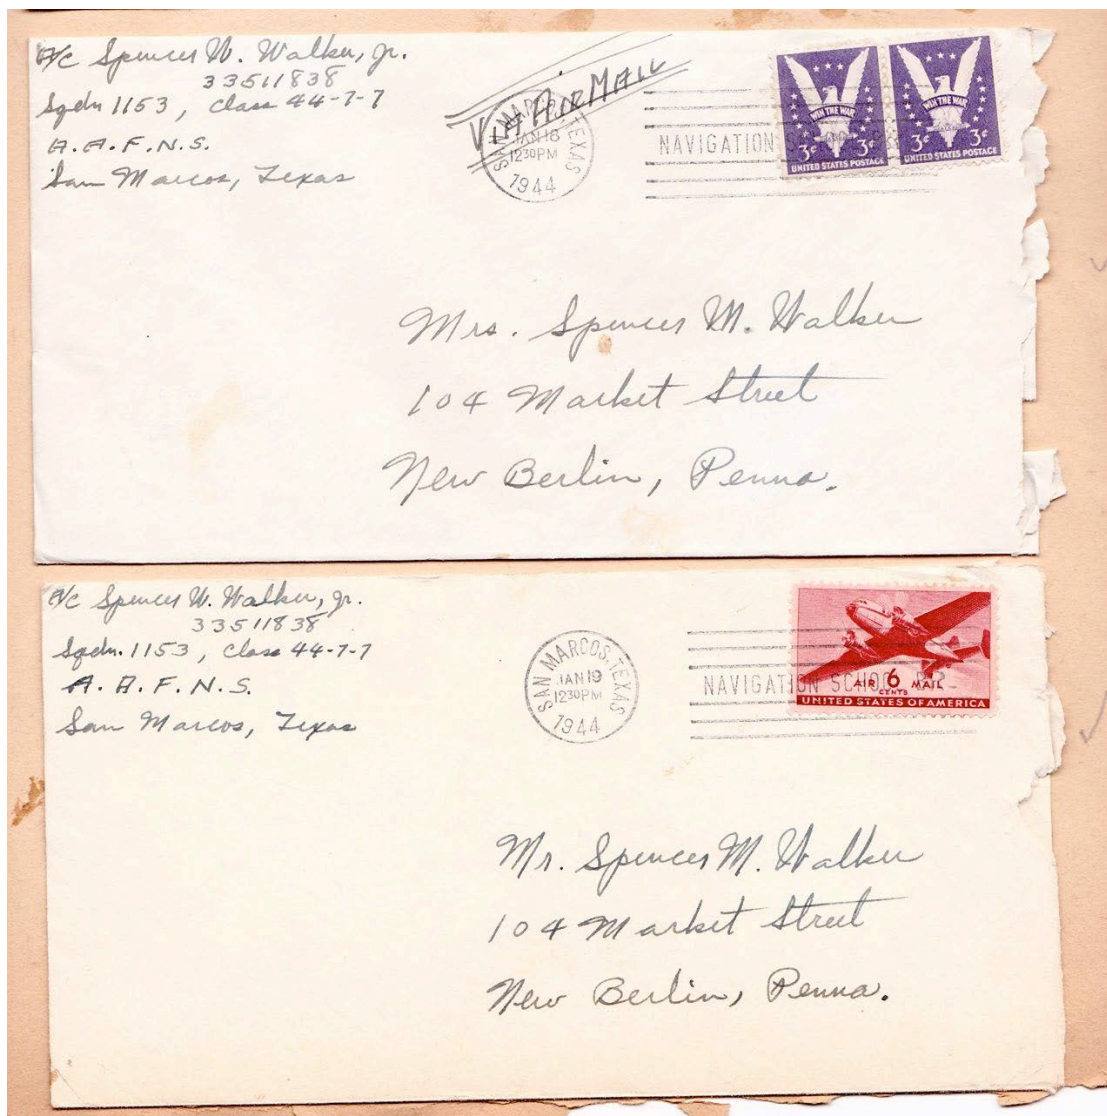 A/C Spencer W. Walker, Jr.
33511838
Sqdn 1153, Class 44-7-7
A.A.F.N.S.
San Marcos, Texas
VIA AIR MAIL
SAN MARCOS, TEXAS
JAN 18
12 30 PM
1944
NAVIGATION
WIN THE WAR
3¢ 3¢
UNITED STATES POSTAGE
WIN THE WAR
3¢ 3¢
UNITED STATES POSTAGE
Mrs. Spencer M. Walker
104 Market Street
New Berlin, Penna.
A/C Spencer W. Walker, Jr.
33511838
Sqdn. 1153, Class 44-7-7
A.A.F.N.S.
San Marcos, Texas
SAN MARCOS, TEXAS
JAN 19
12 30 PM
1944
NAVIGATION SCHOOL
AIR 6 MAIL
CENTS
UNITED STATES OF AMERICA
Mr. Spencer M. Walker
104 Market Street
New Berlin, Penna.